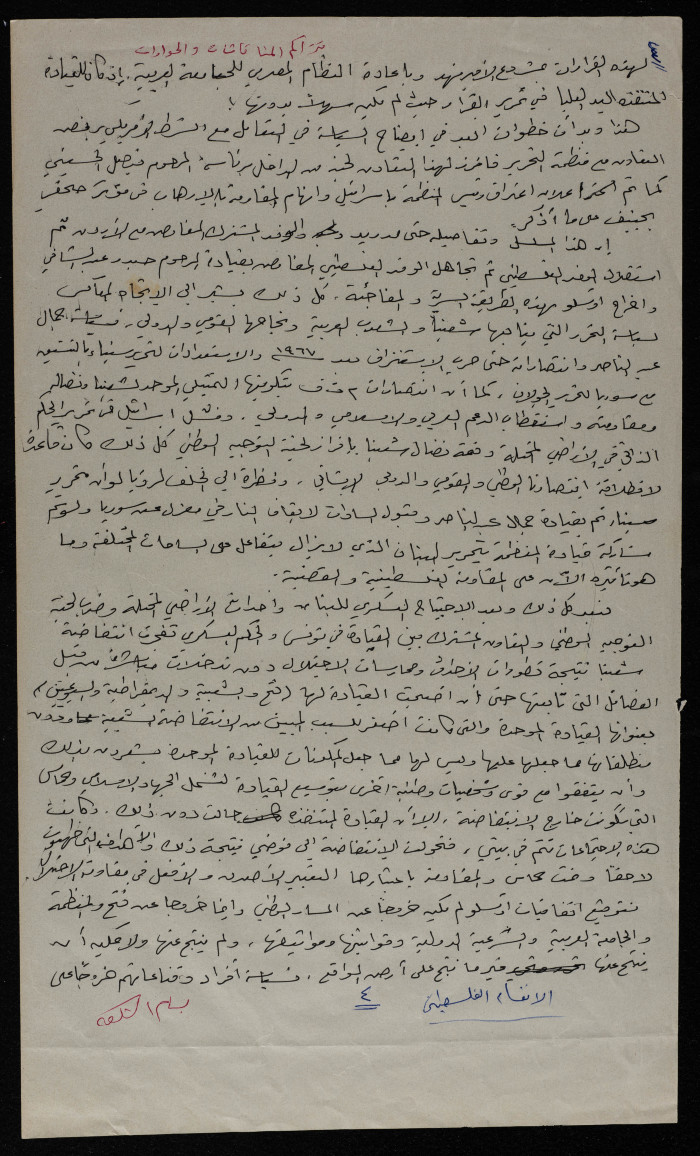 بتراكم المناقشات والحوارات
لهذه القرارات مشروع الأمير فهد وبإعادة النظام المصري للجامعة العربية. إذ كان للقيادة
المتنفذه اليد العليا في تمرير القرار حيث لم يكن سهلاً بدونها!
هذا وبدأت خطوات العد في ايضاح السياسة في التعامل مع الشرط الأمريكي برفض
التعاون مع منظمة التحرير فأفرز لهذا التعاون لجنة من الداخل برئاسة المرحوم فيصل الحسيني
كما تم اعلان اعتراف رئيس المنظمة بإسرائيل واتهام المقاومة بالإرهاب في مؤتمر صحفي
بجنيف على ما أذكر.
إن هذا المسلسل وتفاصيله حتى مدريد والوفد المشترك المفاوض مع الأردن ثم
استقلال الوفد الفلسطيني ثم تجاهل الوفد الفلسطيني المفاوض بقيادة المرحوم حيدر عبد الشافي
واخراج اوسلو بهذه الطريقة السرية والمفاجئة، كل ذلك يشير الى الاتجاه المعاكس
لسياسة التحرر التي يناجيها شعبنا والشعوب العربية ونجاحها القومي والدولي، فسياسة جمال
عبد الناصر وانتصاراته حتى حرب الاستنزاف بعد ١٩٦٧ والاستعدادات لتحرير سيناء بالتنسيق
مع سوريا لتحرير الجولان، كما أن انتصارات م ت ف بتكوينها التمثيلي الموحد لشعبنا ونضاله
ومقاومته واستقطاب الدعم العربي والاسلامي والدولي. وفشل اسرائيل في تمرير الحكم
الذاتي في الأراضي المحتلة وقمة نضال شعبنا بإفراز لجنة التوجيه الوطني كل ذلك كان قاعدة
لانطلاقة انتصارنا الوطني والقومي والدولي الإنساني، ونظرة الى الخلف لرؤيا لو أن تحرير
سيناء تم بقيادة جمال عبد الناصر وقبول السادات لايقاف النار في معزل عن سوريا ولو تم
مشاركة قيادة المنظمة بتحرير لبنان الذي لا يزال يتفاعل على الساحات المختلفة وما
هو تأثيره الآن على المقاومة الفلسطينية والقضية.
فبعد كل ذلك وبعد الاجتياح العسكري للبنان واحداث الأراضي المحتلة وضرب لجنة
التوجيه الوطني والتعاون المشترك بين القيادة في تونس والحكم العسكري تفجرت انتفاضة
شعبنا نتيجة تطورات الأحداث وممارسات الاحتلال دون تدخلات مباشرة من قبل
الفصائل التي تابعتها حتى أن أصبحت القيادة لها (فتح والشعبية والديمقراطية والشيوعيين)
بعنوانها القيادة الموحدة والتي كانت أصغر للسبب المبين من الانتفاضة الشعبية ودون
منطلقاتها مما جعلها عليها وليس لها مما جعل المكونات للقيادة الموحدة يشعرون بذلك
وأن يتفقوا مع قوى وشخصيات وطنية اخرى بتوسيع القيادة لتشمل الجهاد الاسلامي وحماس
التي تكونت خارج الانتفاضة، إلا أن القيادة المتنفذة حالت دون ذلك. وكانت
هذه الاجتماعات تتم في بيتي، فتحولت الإنتفاضة الى فوضى نتيجة ذلك والأهداف التي ظهرت
لاحقا وقت حماس والمقاومة باعتبارها التعبير الأصدق والأفعل في مقاومة الاحتلال.
فتوقيع اتفاقيات اوسلو لم يكن خروجا عن المسار الوطني وانما خروجا عن فتح والمنظمة
والجامعة العربية والشرعية الدولية وقوانينها ومواثيقها، ولم ينتج عنها ولا يمكن أن
ينتج عنها غير ما نتج على أرض الواقع. فسياسة أفراد وقناعاتهم خروجا على
الانقسام الفلسطيني ٤ بسام الشكعه